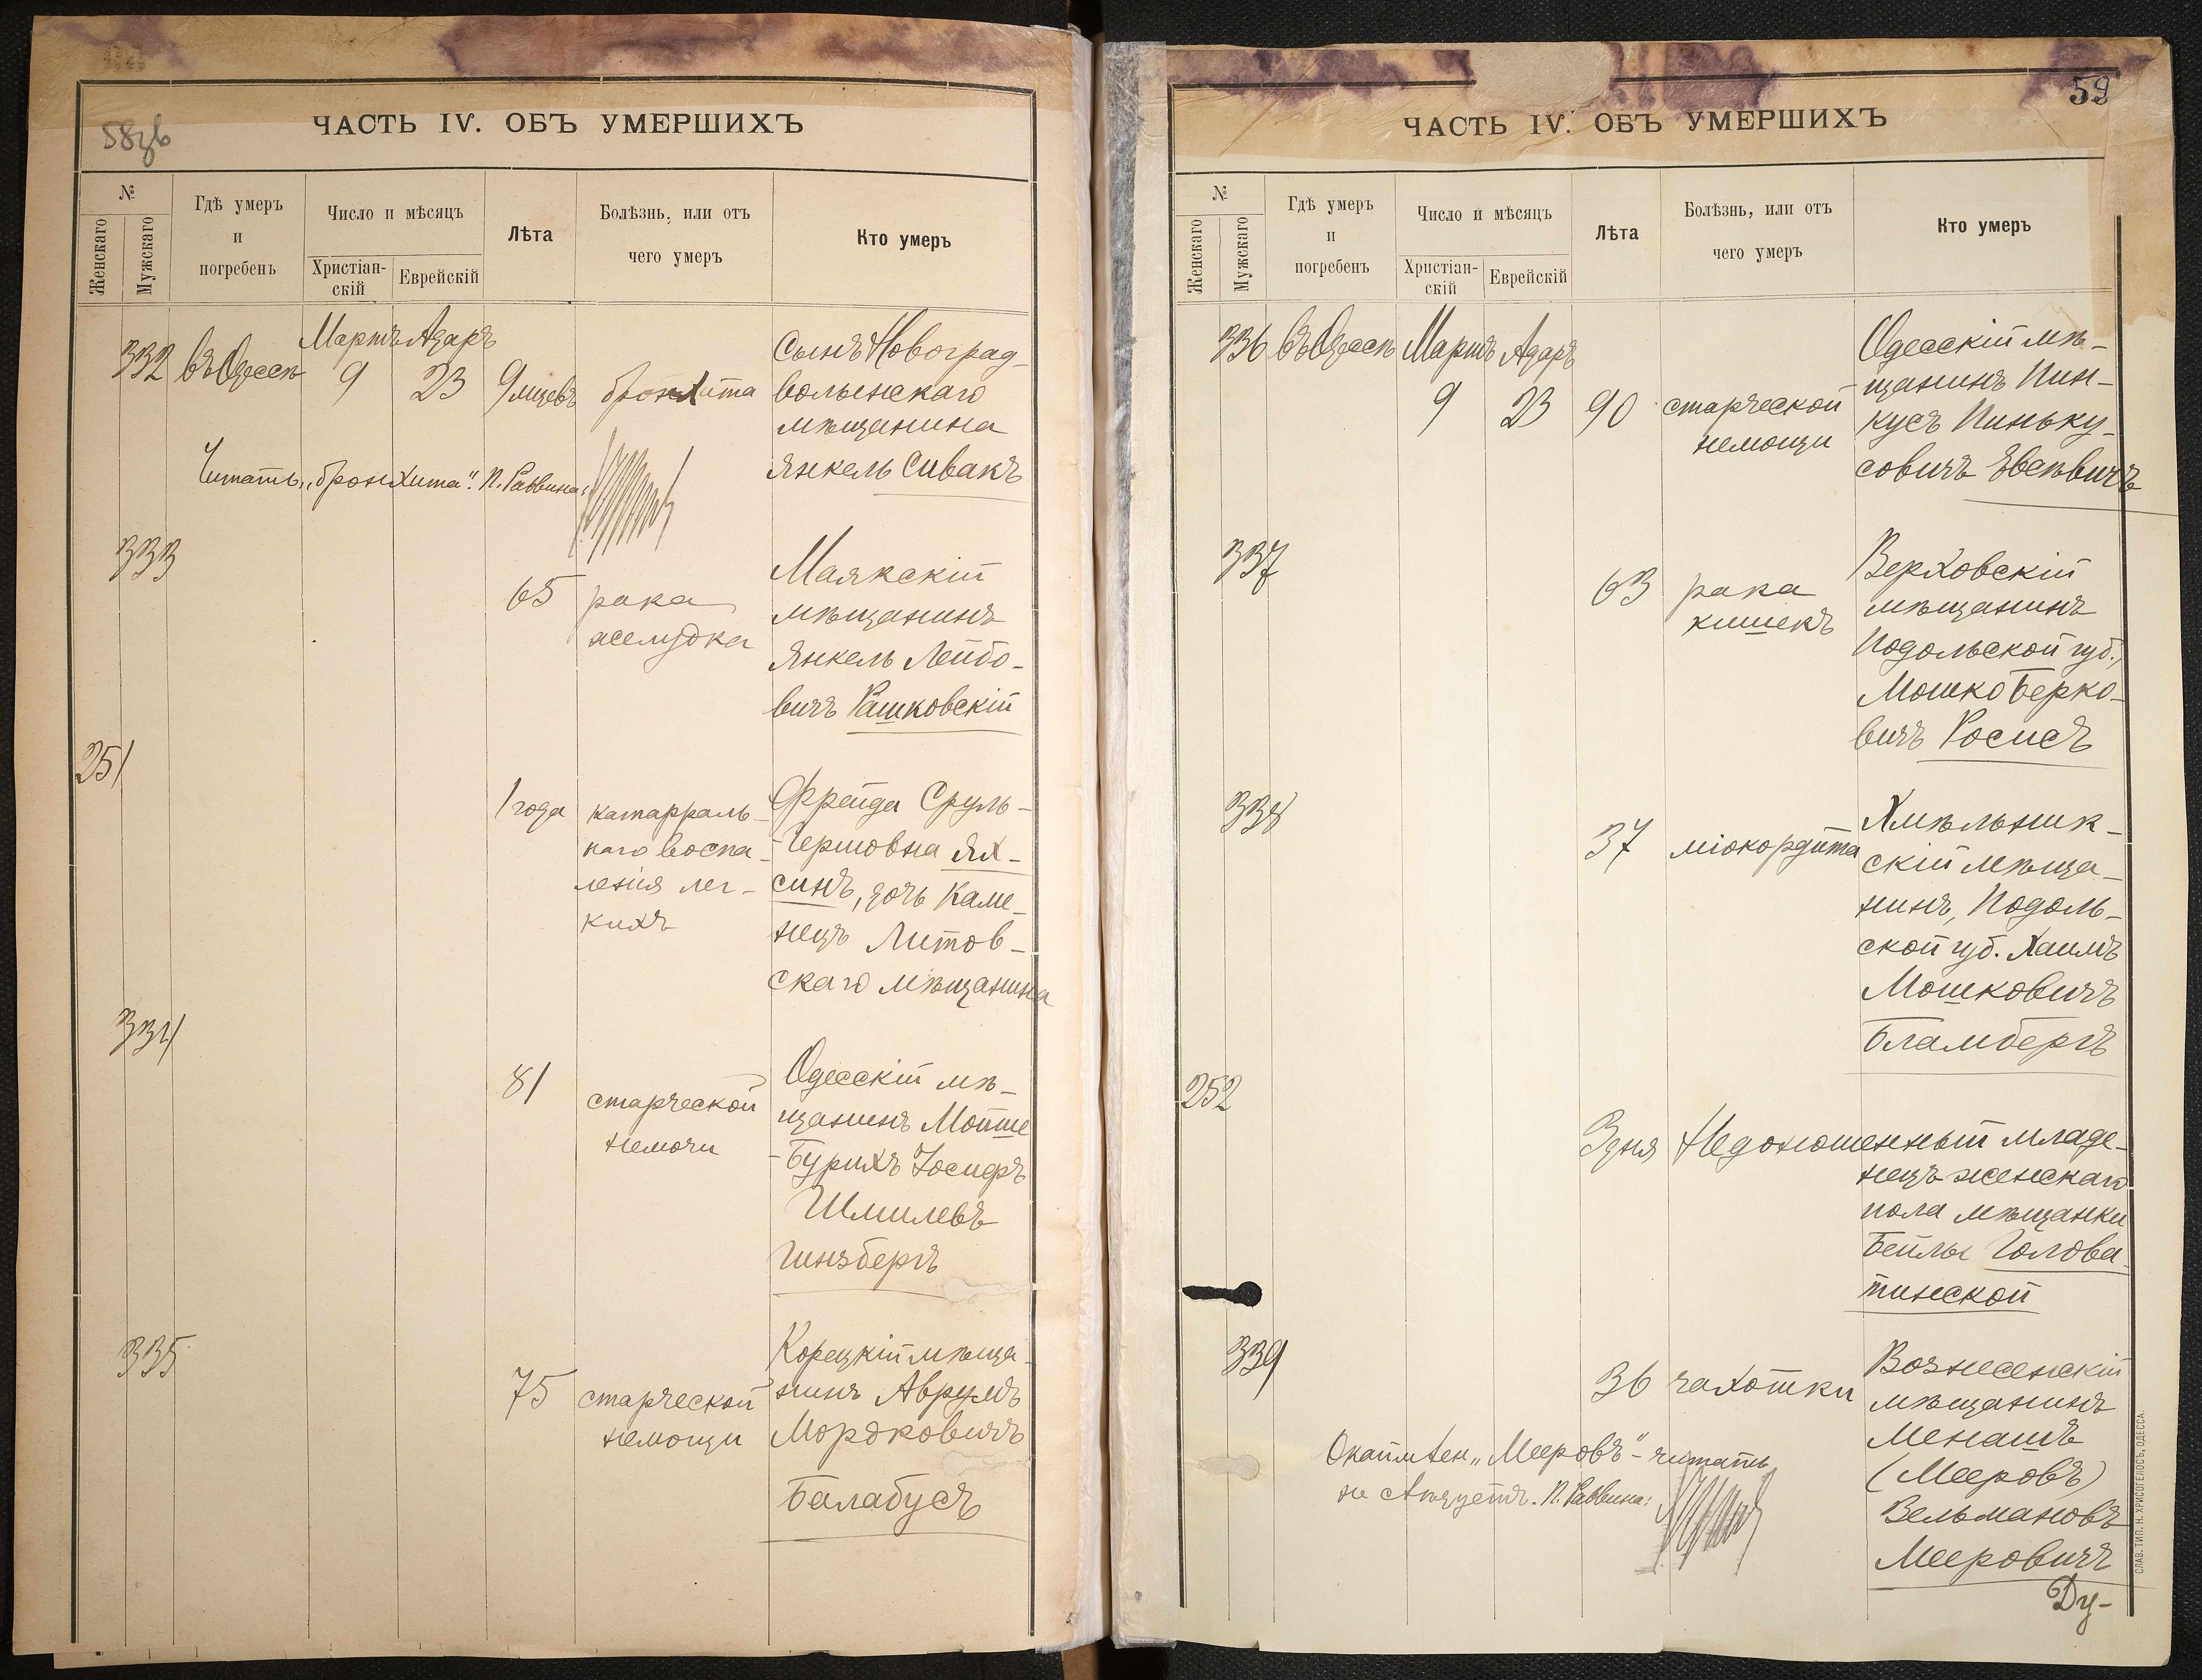 58об
ЧАСТЬ IV. ОБЪ УМЕРШИХЪ
№
Женскаго
Мужскаго
Гдѣ умеръ
и
погребенъ
Число и мѣсяцъ
Христіан-
скій
Еврейскій
Лѣта
Болѣзнь, или отъ
чего умеръ
Кто умеръ
332 въ Одессѣ Мартъ Адаръ
9 23 9 мцевъ бронхита
Сынъ Новоград-
волынскаго
мѣщанина
Янкель Сивакъ
Читать „бронхита“. П. Раввина:
333
65 рака
желудка
Маякскій
мѣщанинъ
Янкель Лейбо-
вичъ Рашковскій
251
1 года катарраль-
наго воспа-
ленія лег-
кихъ
Фрейда Сруль-
-Гершовна Ях-
синъ, дочь Каме-
нецъ Литов-
скаго мѣщанина
334
81 старческой
немочи
Одесскій мѣ-
щанинъ Мойше
-Бурихъ Іосифъ
Шмилевъ
Гинзбергъ
335
75 старческой
немощи
Корецкій мѣща-
нинъ Аврумъ
Мордковичъ
Балабусъ
59
ЧАСТЬ IV. ОБЪ УМЕРШИХЪ
№
Женскаго
Мужскаго
Гдѣ умеръ
и
погребенъ
Число и мѣсяцъ
Христіан-
скій
Еврейскій
Лѣта
Болѣзнь, или отъ
чего умеръ
Кто умеръ
336 въ Одессѣ Мартъ Адаръ
9 23 90 старческой
немощи
Одесскій мѣ-
щанинъ Пин-
кусъ Пиньку-
совичъ Евсѣвичъ
337
63 рака
кишекъ
Верховскій
мѣщанинъ
Подольской губ.,
Мошко Берко-
вичъ Росисъ
338
37 міокордита
Хмѣльник-
скій мѣща-
нинъ, Подоль-
ской губ. Хаимъ
Мошковичъ
Бламбергъ
252
3 дня Недоношенный младе-
нецъ женскаго
пола мѣщанки
Бейлы Голова-
тинской
339
36 чахотки
Вознесенскій
мѣщанинъ
Менашъ
(Мееровъ)
Вельмановъ
Мееровичъ
„Мееровъ“ - читать
не слѣдуетъ. П. Раввина:
Ду-
СЛАВ. ТИП. Н. ХРИСОГЕЛОСЪ, ОДЕССА.